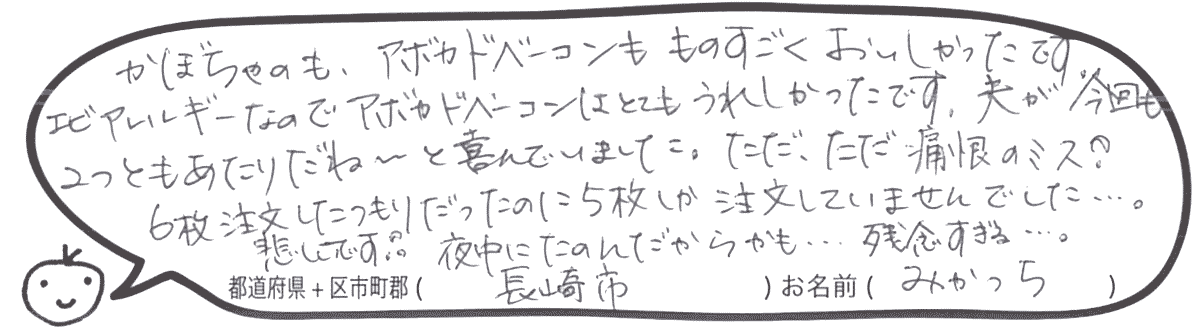 かぼちゃのも、アボカドベーコンも ものすごく おいしかったです。
エビアレルギーなので アボカドベーコンは とても うれしかったです。夫が 今回も
2つとも あたりだね〜 と 喜んでいました。ただ、ただ 痛恨のミス??
6枚注文したつもりだったのに 5枚しか 注文していませんでした…。
悲しいです?? 夜中にたのんだからかも… 残念すぎる…。
都道府県+区市町郡 ( 長崎市 ) お名前 ( みかっち )